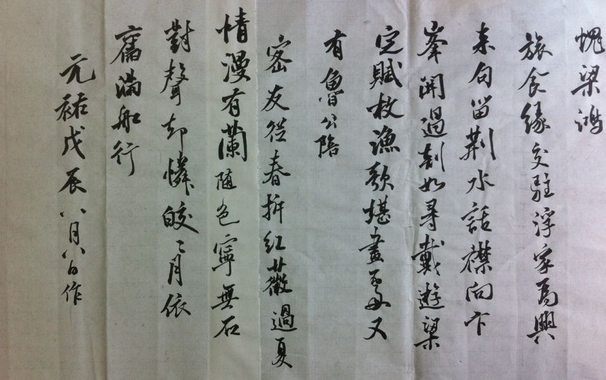 愧梁鴻
旅食緣交駐浮家為興
来句留荆水話襟向卞
峯開過剡如尋戴遊梁
定賦枚漁歌堪畫處又
有魯公陪
密友從春拆紅薇過夏
情漫有蘭隨色寧無石
對聲却憐皎々月依
舊滿船行
元祐戊辰八月八日作